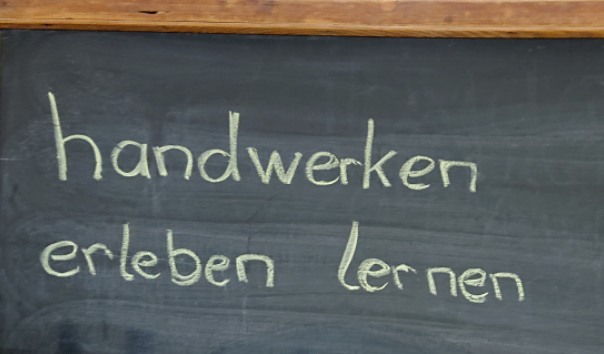 handwerken
erleben lernen